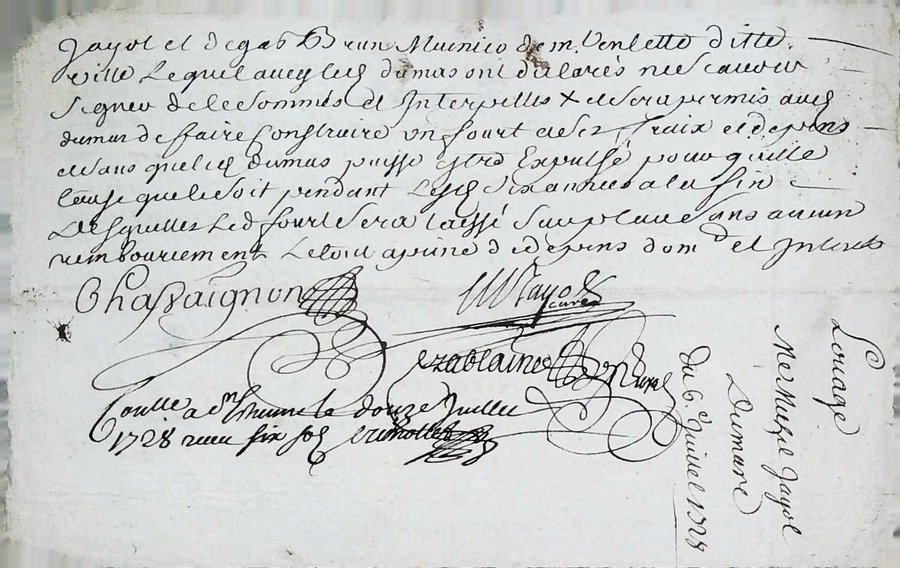 Jayol et de gab Brun Musnier de m. Venlette ditte
ville Lequel avey led dumas ont declarés ne scavoir
signer de le sommés et Interpellés X et sera permis aud
dumas de faire Construire un fourt a ses fraix et depens
et sans que led dumas puisse estre Expulsé pour quelle
Cause que ce soit pendant Lesd six années a la fin
Desquelles Led fourt sera laissé sur place sans aucun
remboursement Le tout a peine de depens dom et Interets
Chassaignon Jayol curé
Controllé a le douze Juillet
1728 receu six sols
Louage
Mre Jayol
Dumare
Du 6e Juillet 1728